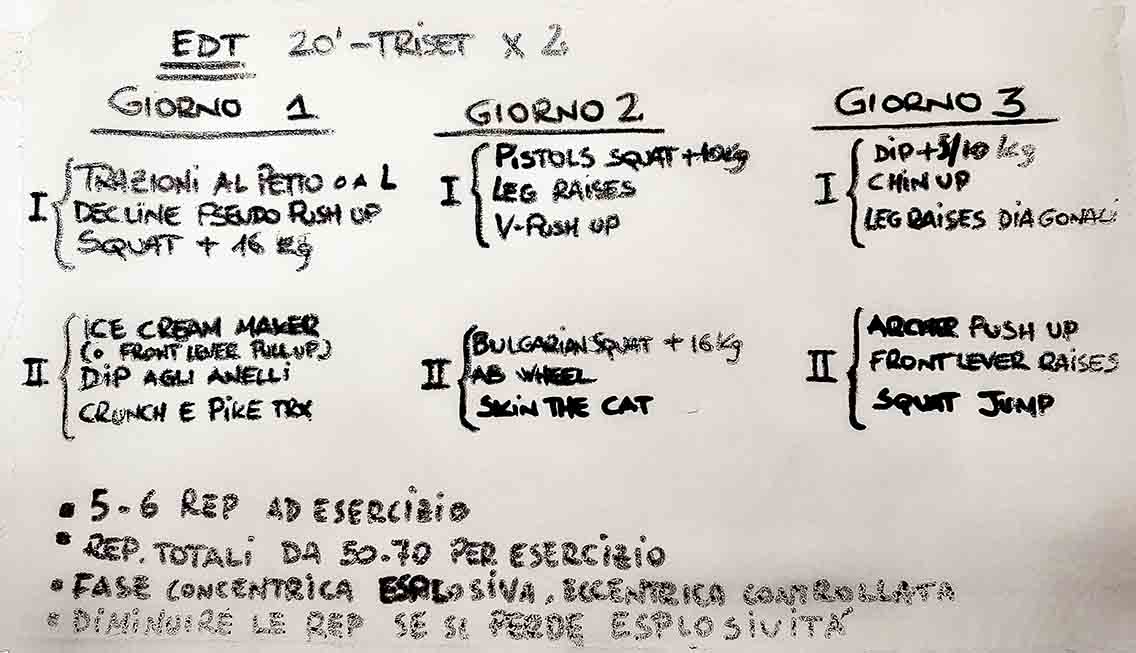 EDT 20' - TRISET X 2
GIORNO 1
I
TRAZIONI AL PETTO O A L
DECLINE PSEUDO PUSH UP
SQUAT + 16 kg
II
ICE CREAM MAKER
(O FRONT LEVER PULL UP)
DIP AGLI ANELLI
CRUNCH E PIKE TRX
GIORNO 2
I
PISTOLS SQUAT + 10kg
LEG RAISES
V-PUSH UP
II
BULGARIAN SQUAT + 16 kg
AB WHEEL
SKIN THE CAT
GIORNO 3
I
DIP + 5/10 kg
CHIN UP
LEG RAISES DIAGONALI
II
ARCHER PUSH UP
FRONT LEVER RAISES
SQUAT JUMP
• 5-6 REP AD ESERCIZIO
• REP. TOTALI DA 50-70 PER ESERCIZIO
• FASE CONCENTRICA ESPLOSIVA, ECCENTRICA CONTROLLATA
• DIMINUIRE LE REP SE SI PERDE ESPLOSIVITÁ